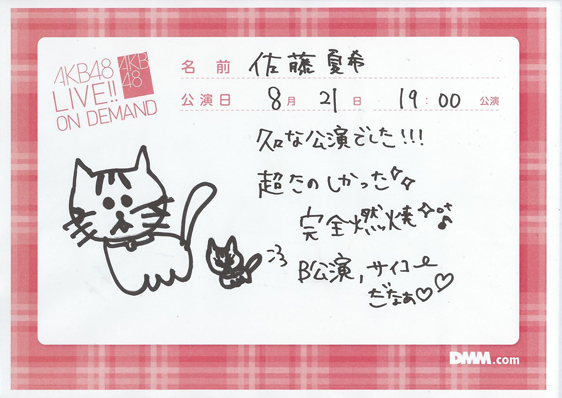 AKB48
LIVE!!
ON DEMAND
AKB
48
名前 佐藤夏希
公演日 8月21日 19:00 公演
久々な公演でした!!!
超たのしかった
完全燃焼
B公演,サイコー
だなぁ♡♡
DMM.com